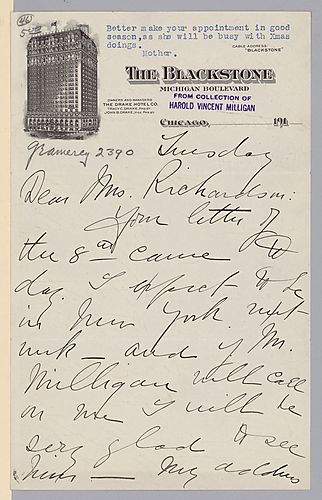 46
5.00
Better make your appointment in good
season, as she will be busy with Xmas
doings.
Mother.
CABLE ADDRESS
"BLACKSTONE"
THE BLACKSTONE
MICHIGAN BOULEVARD
OWNERS AND MANAGERS
THE DRAKE HOTEL CO.
TRACY C. DRAKE, PRES'T
JOHN B. DRAKE, VICE PRES'T
FROM COLLECTION OF
HAROLD VINCENT MILLIGAN
CHICAGO, 191
Gramercy 2390
Tuesday
Dear Mrs. Richardson:
Your letter of
the 8th came to
day. I expect to be
in New York next
week - and if Mr.
Milligan will call
on me I will be
very glad to see
him - My address